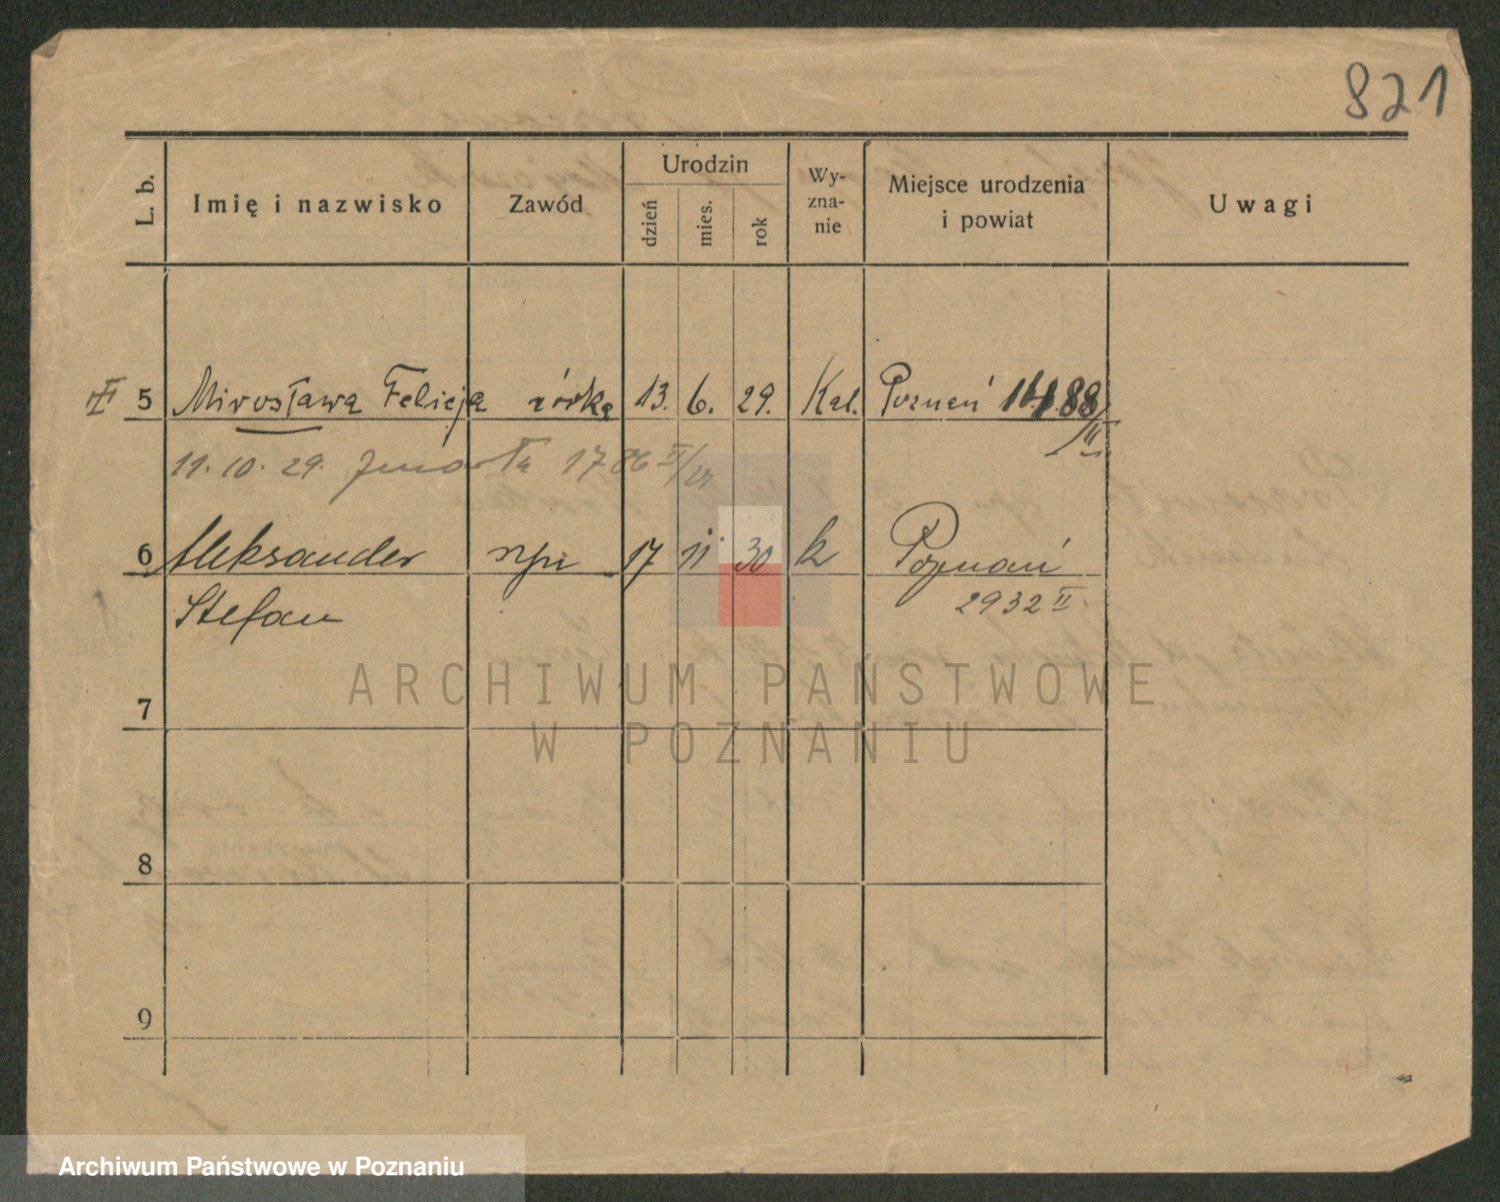 821
L. b.
Imię i nazwisko
Zawód
Urodzin
dzień
mies.
rok
Wy-
zna-
nie
Miejsce urodzenia
i powiat
Uwagi
5 Mirosława Felicja córka 13. 6. 29. Kat. Poznań
11. 10. 29. zmarła 1786 II/29
6 Aleksander syn 17 11 30 k Poznań
Stefan 2932 II
ARCHIWUM PAŃSTWOWE
7
W POZNANIU
8
9
Archiwum Państwowe w Poznaniu